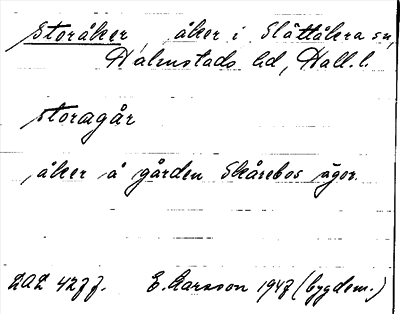 Storåker, åker i Slättåkra sn,
Halmstads hd, Hall. l.
storagår
åker å gården Skårebos ägor.
DAL 4277. E. Larsson 1948 (bygdem.)